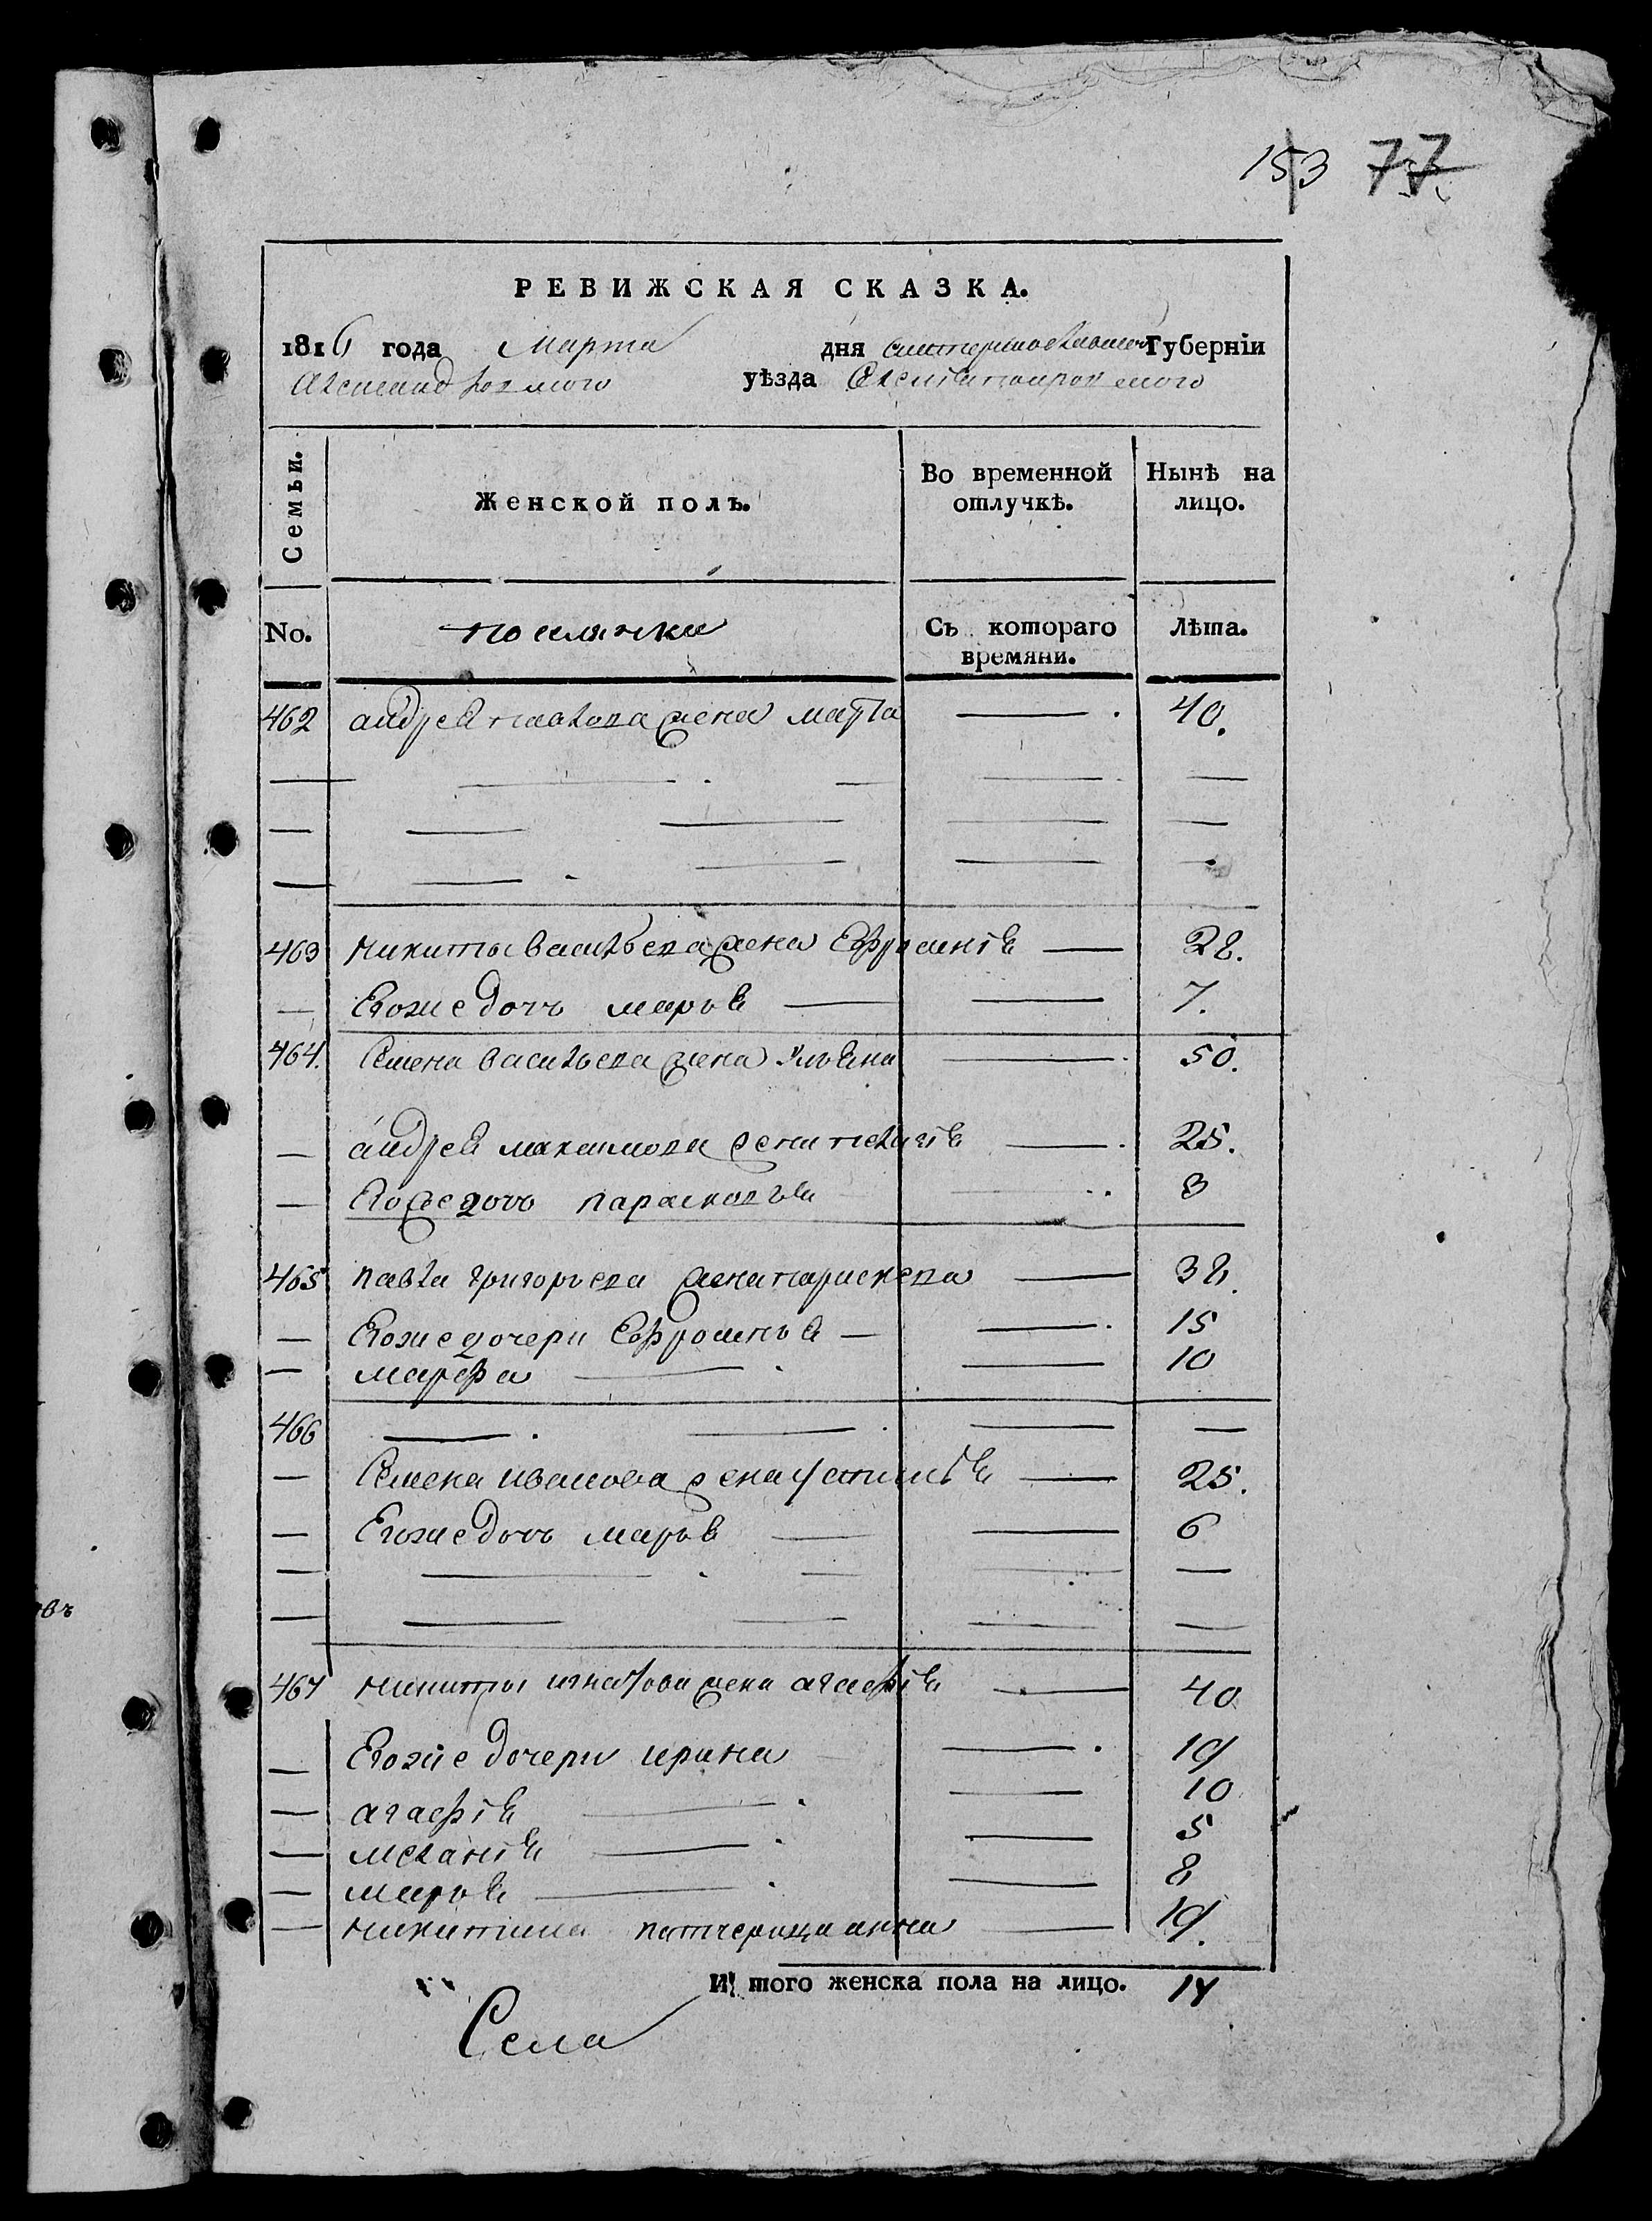 153 77
РЕВИЖСКАЯ СКАЗКА.
1816 года Марта дня Губерніи
уѣзда
Семьи. Женской полъ. Во временной отлучкѣ. Нынѣ на лицо.
No. поселянки Съ котораго времяни. Лѣта.
462 андрея павлова жена марfа — 40.
463 никиты васильева жена Ефросинія — 28.
— Егоже дочь марья — 7.
464. Семена васильева жена ульяна — 50.
— андрея максимова жена пелагія — 25.
— Егоже дочь парасковья 3
465 павла григорьева жена — 38.
— Егоже дочери Ефросинья — 15
— марфа — 10
466 — — —
— Семена иванова жена устинія — 25.
— Егоже дочь марья — 6
467 никиты игнатова жена агафія — 40
— Егоже дочери ирина — 19
— агафія — 10
— меланія — 5
— марья — 8
— никитина патчерица анна — 19.
И того женска пола на лицо. 17
Села
въ